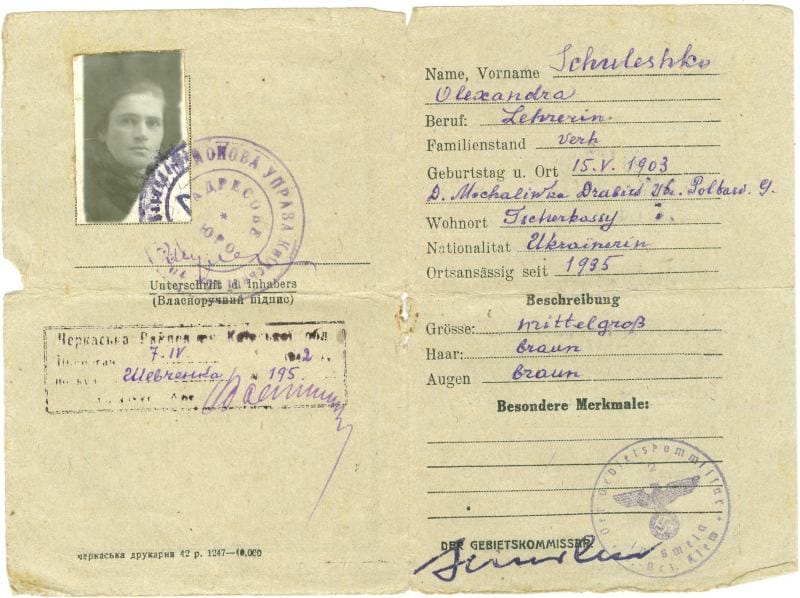 Unterschrift d. Inhabers
(Власноручний підпис)
АДРЕСОВЕ
БЮРО
Черкаська
7.IV 2
Шевченка 195
черкаська друкарня 42 р. 1247—10.000
Name, Vorname Schuleshko
Olexandra
Beruf: Lehrerin
Familienstand verh
Geburtstag u. Ort 15.V. 1903
D.
Wohnort Tscherkassy
Nationalitat Ukrainerin
Ortsansässig seit 1935
Beschreibung
Grösse: mittelgroß
Haar: braun
Augen braun
Besondere Merkmale:
DER GEBIETSKOMMISSAR.
Der Gebietskommissar